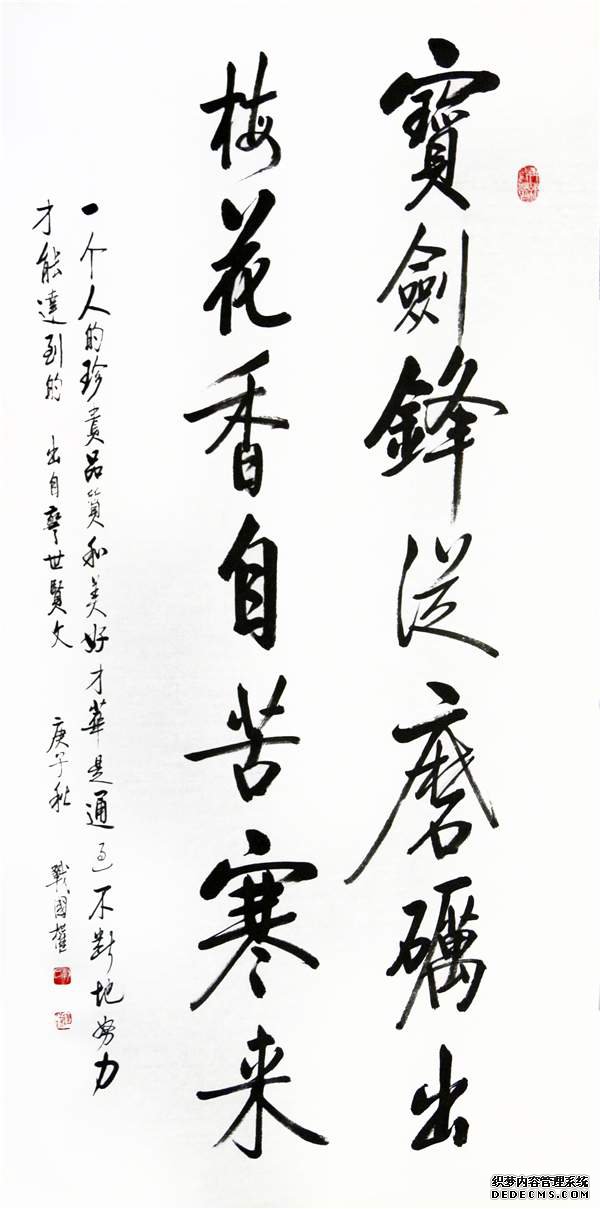 寶劍鋒從磨礪出
梅花香自苦寒来
一个人的珍貴品質和美好才華是通过不斷地努力
才能達到的 出自警世賢文 庚子秋 戰國權
织梦内容管理系统
DEDECMS.COM